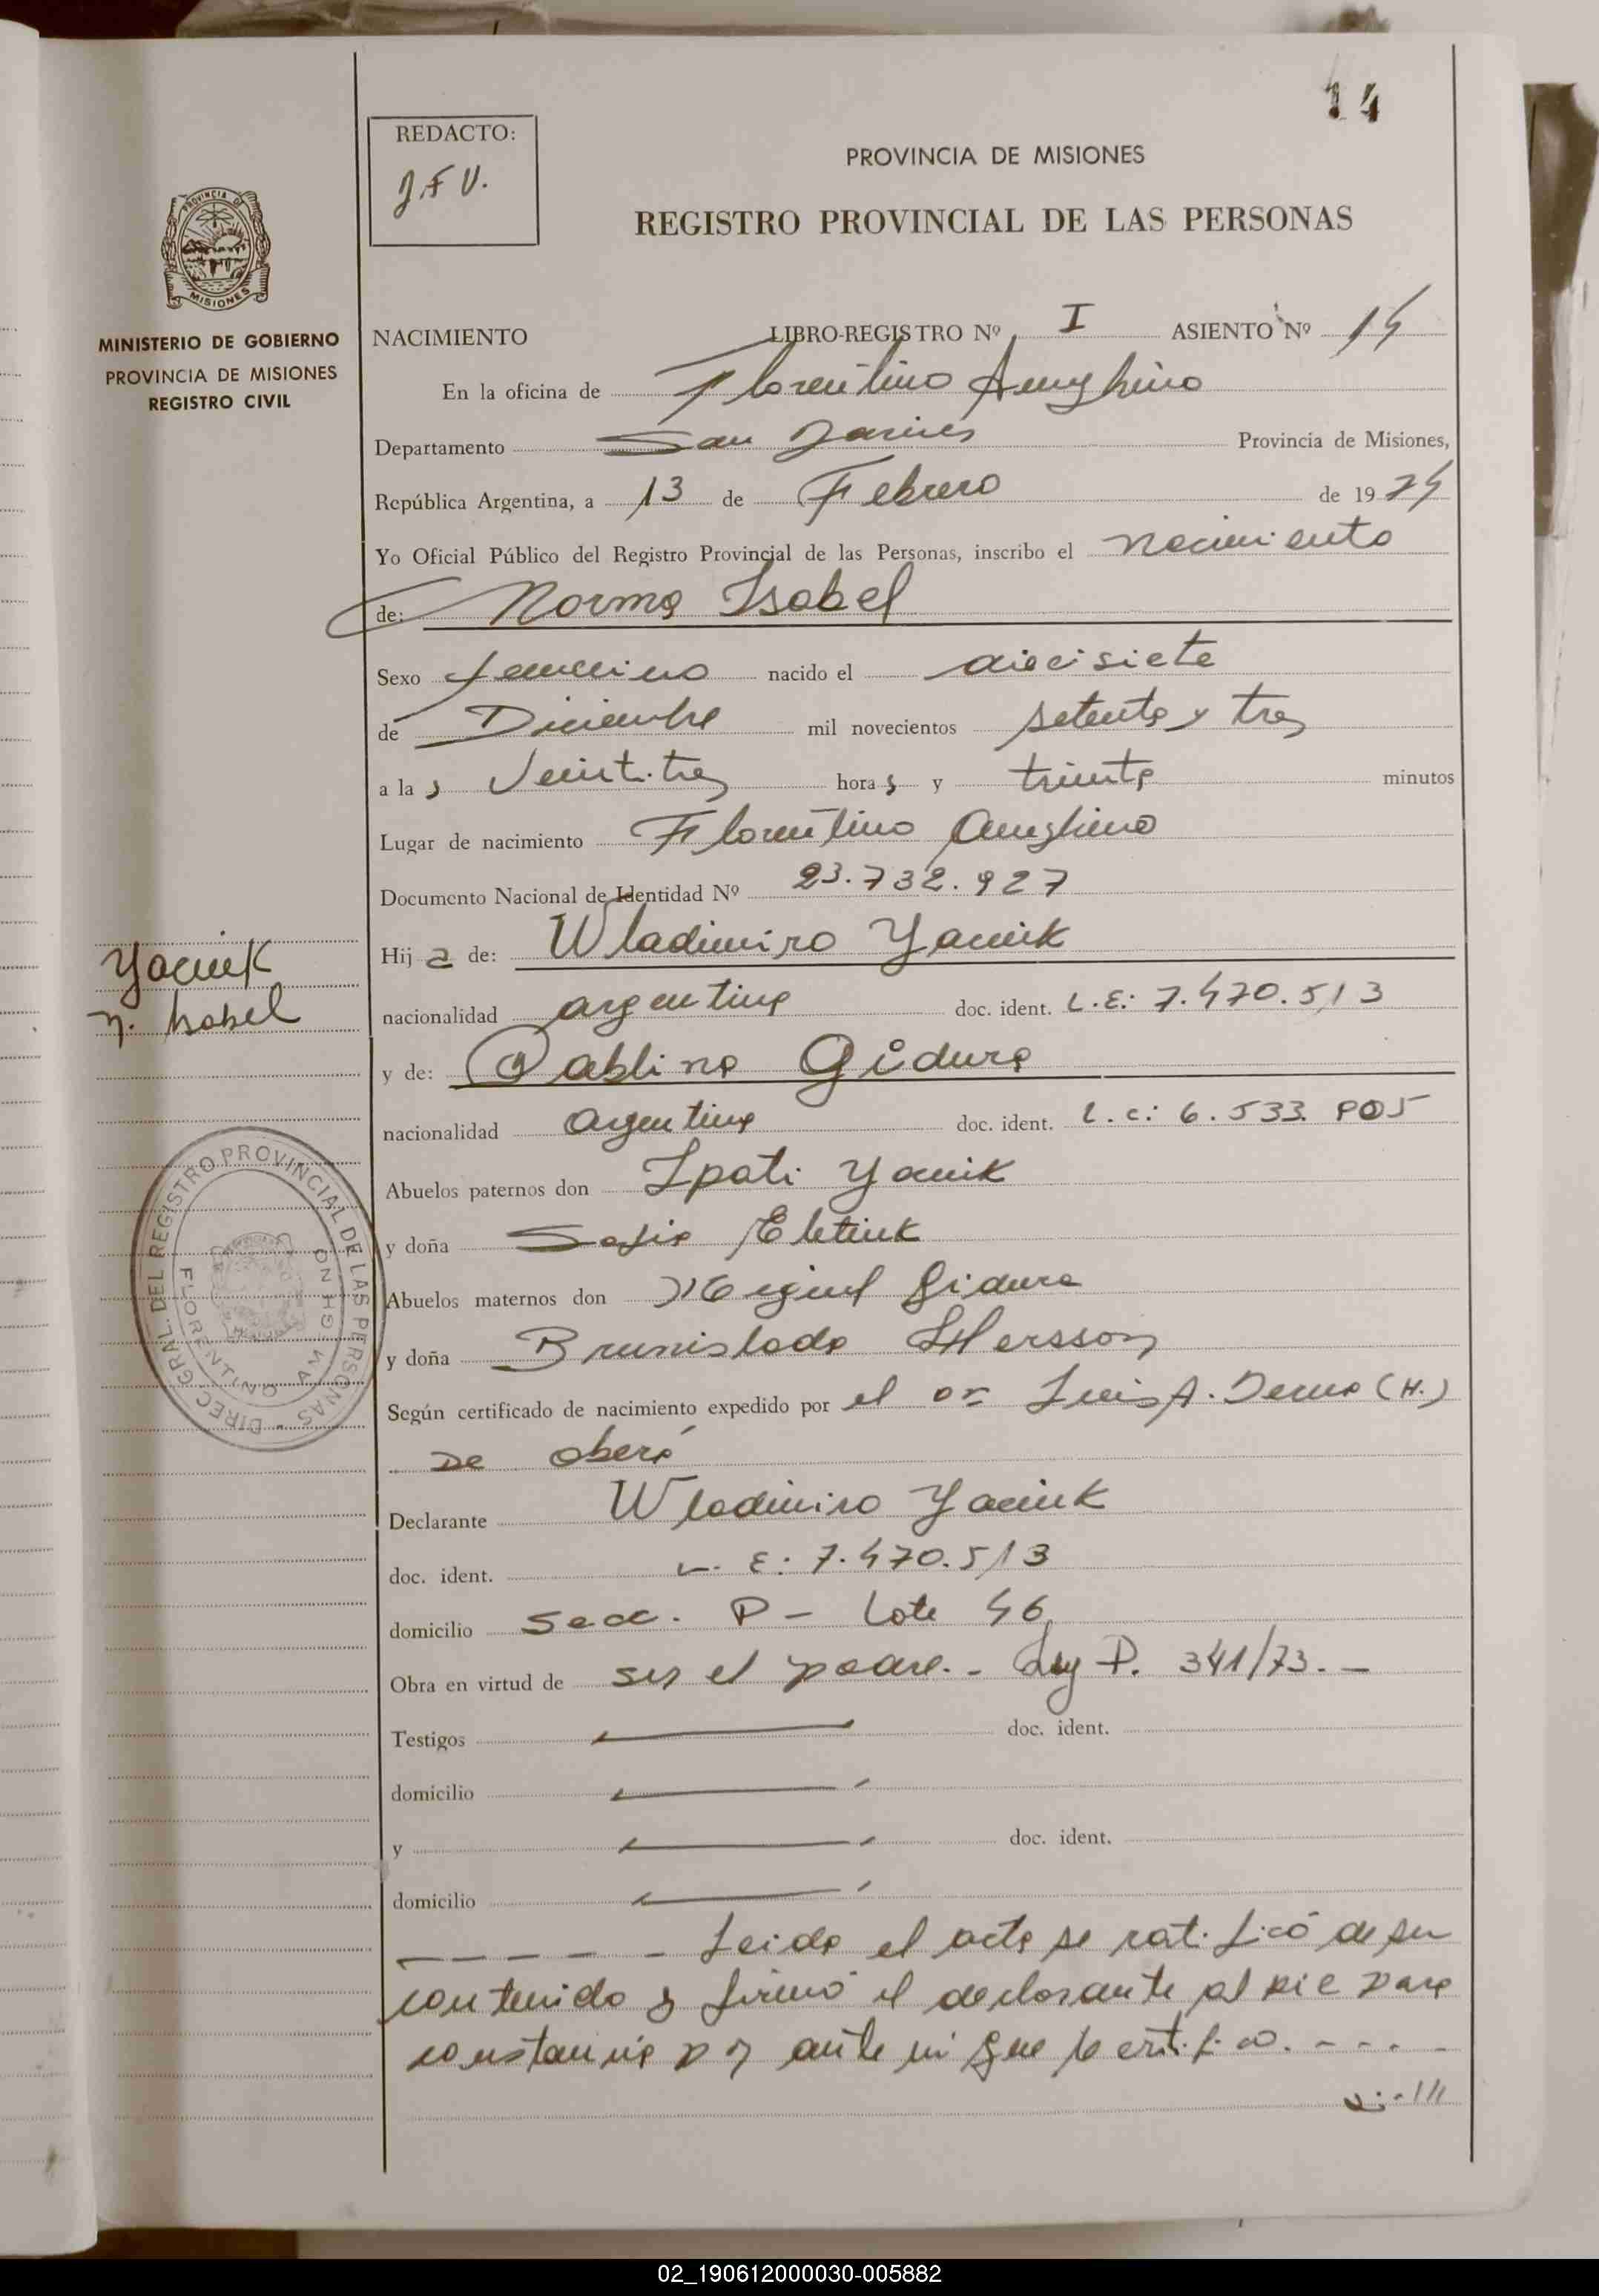 14
REDACTO:
J.F.V.
PROVINCIA DE MISIONES
REGISTRO PROVINCIAL DE LAS PERSONAS
PROVINCIA DE
MISIONES
MINISTERIO DE GOBIERNO
PROVINCIA DE MISIONES
REGISTRO CIVIL
NACIMIENTO LIBRO-REGISTRO Nº I ASIENTO Nº 14
En la oficina de Florentino Ameghino
Departamento San Javier Provincia de Misiones,
República Argentina, a 13 de Febrero de 1974
Yo Oficial Público del Registro Provincial de las Personas, inscribo el nacimiento
de: Norma Isabel
Sexo femenino nacido el diecisiete
de Diciembre mil novecientos setenta y tres
a las veintitres horas y treinta minutos
Lugar de nacimiento Florentino Ameghino
Documento Nacional de Identidad Nº 23.732.927
Hija de: Wladimiro Yaciuk
nacionalidad argentina doc. ident. L.E.: 7.470.513
y de: Pablina Gidura
nacionalidad argentina doc. ident. L.C.: 6.533.905
Abuelos paternos don Ipati Yaciuk
y doña Sofia
Abuelos maternos don Miguel Gidura
y doña Brunislada
Según certificado de nacimiento expedido por el Dr Luis A. (H.)
De Oberá
Declarante Wladimiro Yaciuk
doc. ident. L.E: 7.470.513
domicilio Secc. P - Lote 46
Obra en virtud de ser el padre. - Ley P. 341/73. -
Testigos doc. ident.
domicilio
y doc. ident.
domicilio
- - - - - Leida el acta se ratificó de su
contenido y firmó el declarante al pie para
constancia por ante mi que lo certifico. - - - -
///
Yaciuk
N. Isabel
DIREC. GRAL. DEL REGISTRO PROVINCIAL DE LAS PERSONAS
FLORENTINO AMEGHINO
02_190612000030-005882